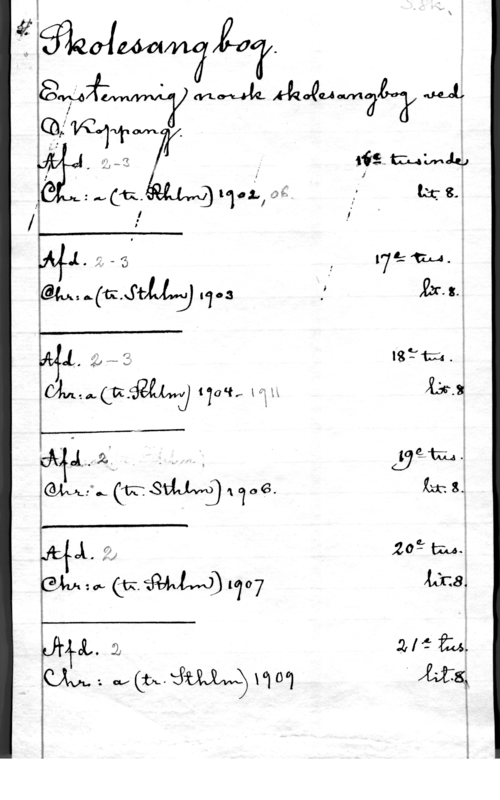 Skolesangbog.
Enstemmig norsk skolesangbog ved
O. Koppang.
Afd. 2-3 16e tusinde
Chr:a (tr. Sthlm) 1902, 06. lit. 8.
Afd. 2-3 17e tus.
Chr:a (tr. Sthlm) 1903 lit. 8.
Afd. 2-3 18e tus.
Chr:a (tr. Sthlm) 1904-1911 lit. 8
Afd. 2 19e tus.
Chr:a (tr. Sthlm) 1906. lit. 8.
Afd. 2 20e tus.
Chr:a (tr. Sthlm) 1907 lit. 8.
Afd. 2 21e tus.
Chr:a (tr. Sthlm) 1909 lit. 8.